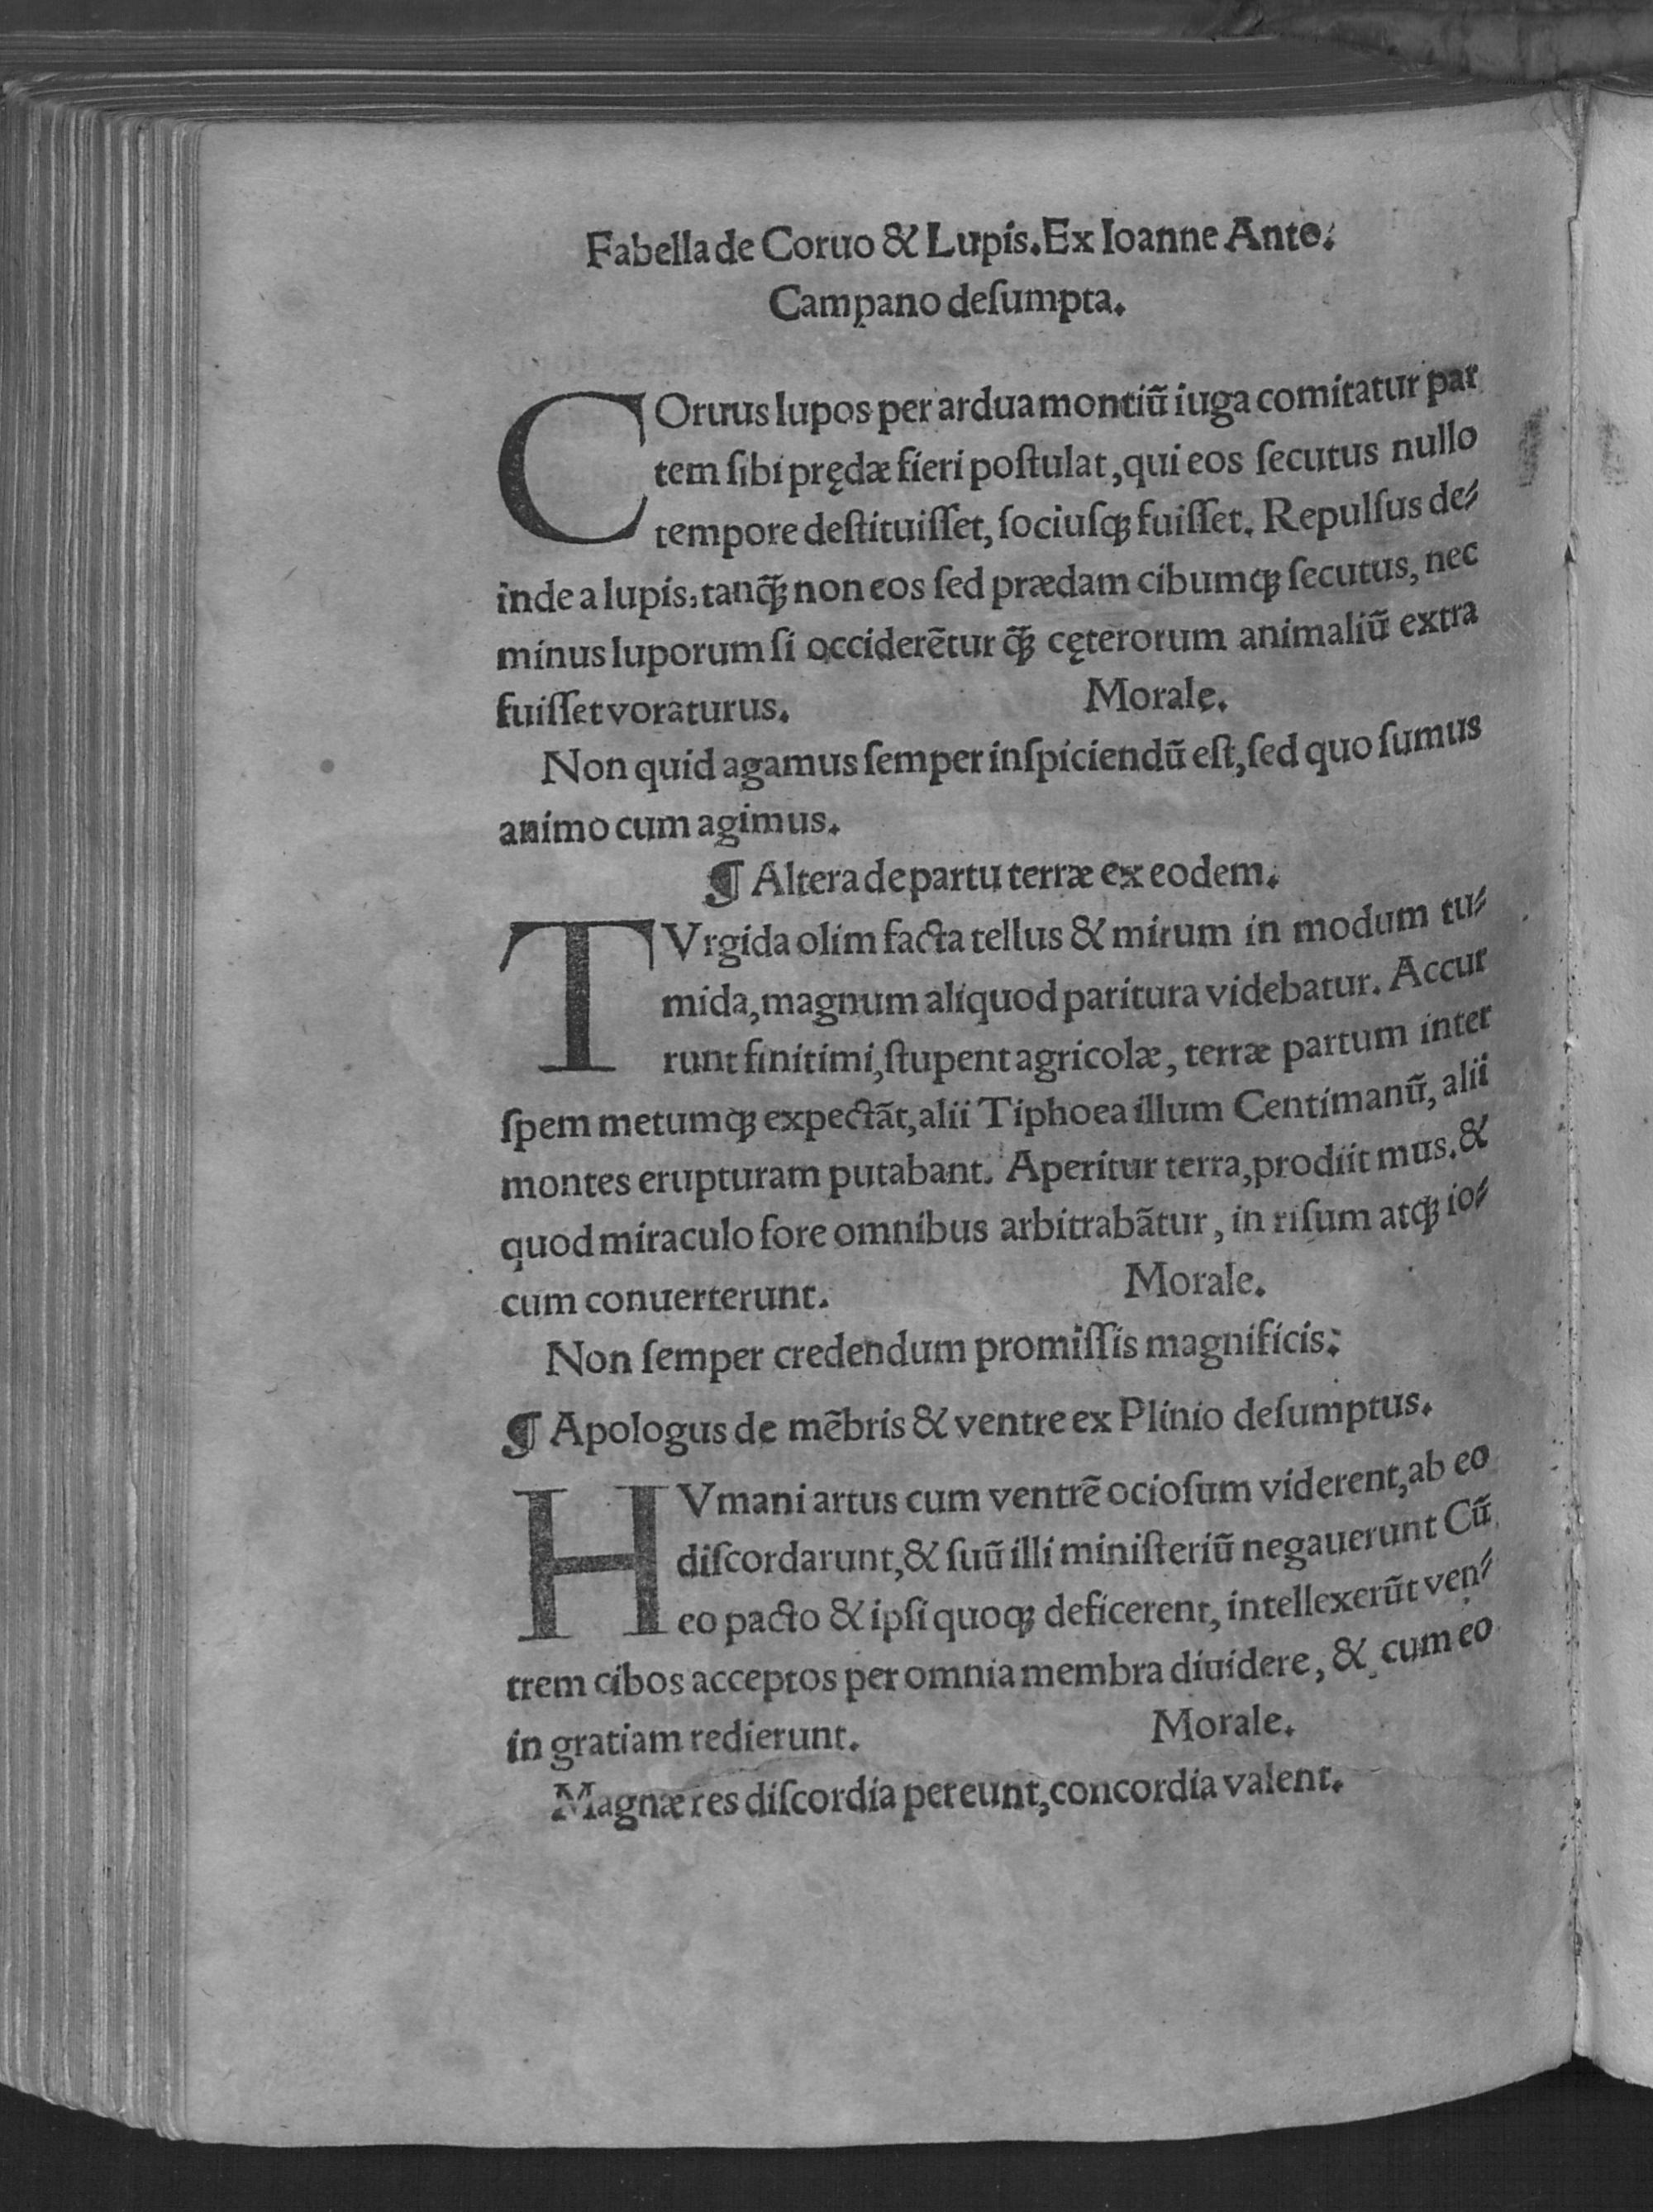 Fabella de Coruo & Lupis. Ex Ioanne Anto.
Campano deſumpta.
COruus lupos per ardua montiũ iuga comitatur par
tem ſibi prędæ fieri poſtulat, qui eos ſecutus nullo
tempore deſtituiſſet, ſociuſqꝫ fuiſſet. Repulſus de⸗
inde a lupis, tanq̃ꝫ non eos ſed prædam cibumqꝫ ſecutus, nec
minus luporum ſi occiderẽtur q̃ꝫ cęterorum animaliũ extra
fuiſſet voraturus. Morale.
Non quid agamus ſemper inſpiciendũ eſt, ſed quo ſumus
animo cum agimus.
¶ Altera de partu terræ ex eodem.
TVrgida olim facta tellus & mirum in modum tu⸗
mida, magnum aliquod paritura videbatur. Accur
runt finitimi, ſtupent agricolæ, terræ partum inter
ſpem metumqꝫ expectãt, alii Tiphoea illum Centimanũ, alii
montes erupturam putabant. Aperitur terra, prodiit mus. &
quod miraculo fore omnibus arbitrabãtur, in riſum atqꝫ io⸗
cum conuerterunt. Morale.
Non ſemper credendum promiſſis magnificis:
¶ Apologus de mẽbris & ventre ex Plinio deſumptus.
HVmani artus cum ventrẽ ocioſum viderent, ab eo
diſcordarunt, & ſuũ illi miniſteriũ negauerunt Cũ
eo pacto & ipſi quoqꝫ deficerent, intellexerũt ven⸗
trem cibos acceptos per omnia membra diuidere, & cum eo
in gratiam redierunt. Morale.
Magnæ res diſcordia pereunt, concordia valent.